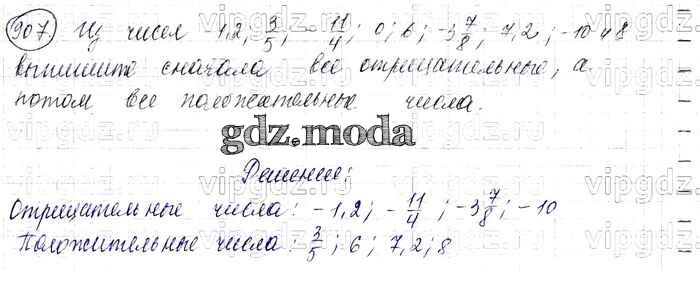 907. Из чисел -1,2; 3/5; -11/4; 0; 6; -3 7/8; 7,2; -10 и 8
выпишите сначала все отрицательные, а
потом все положительные числа.
gdz.moda
Решение:
Отрицательные числа: -1,2; -11/4; -3 7/8; -10
Положительные числа: 3/5; 6; 7,2; 8